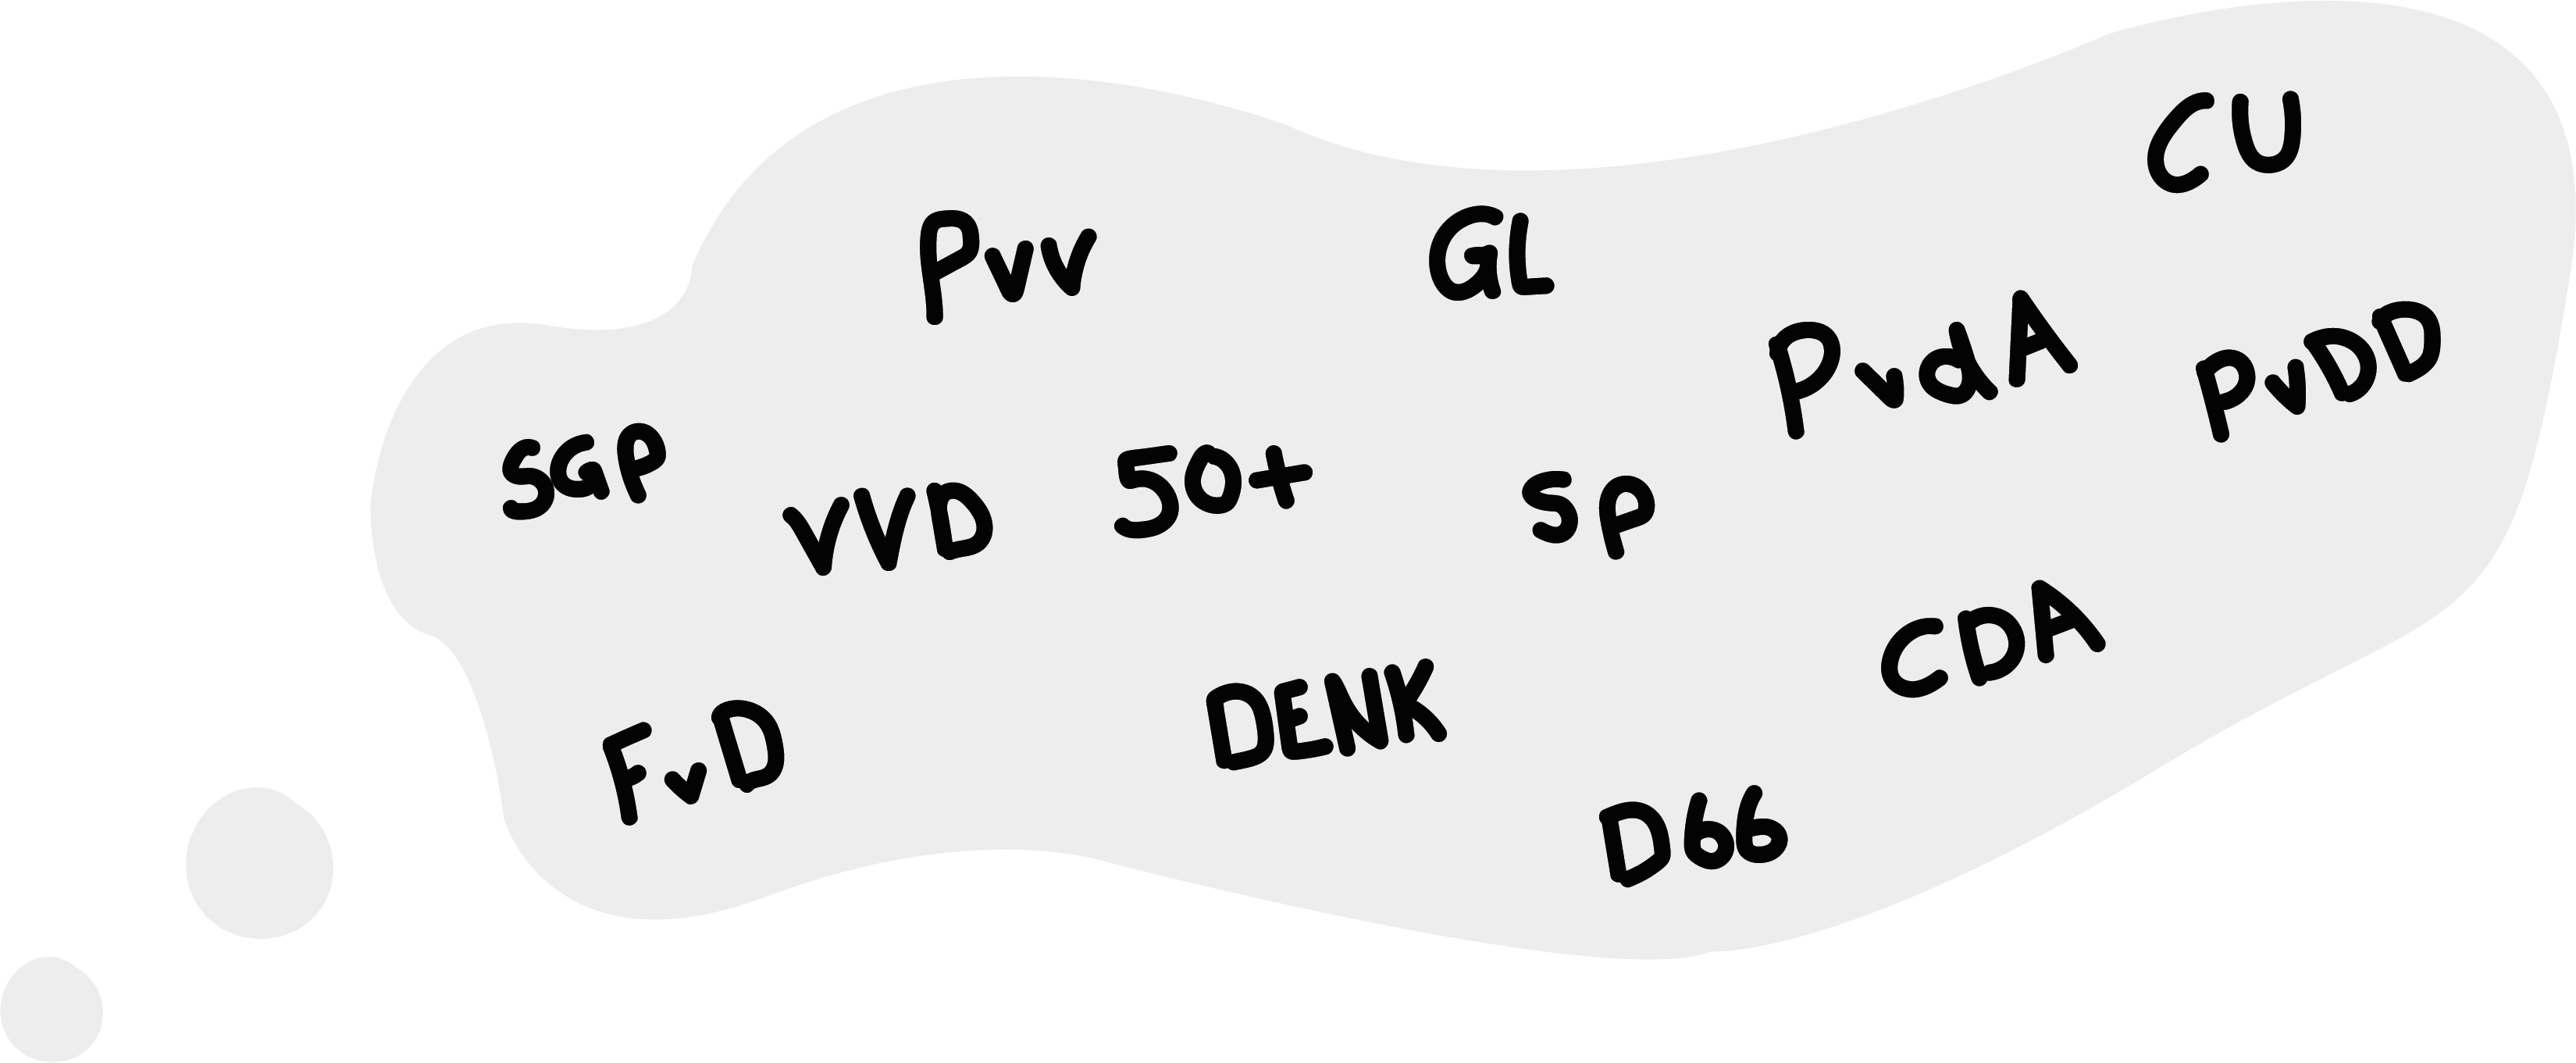 CU
PVV
GL
PvdA
PvDD
SGP
VVD
50+
SP
CDA
DENK
FvD
D66